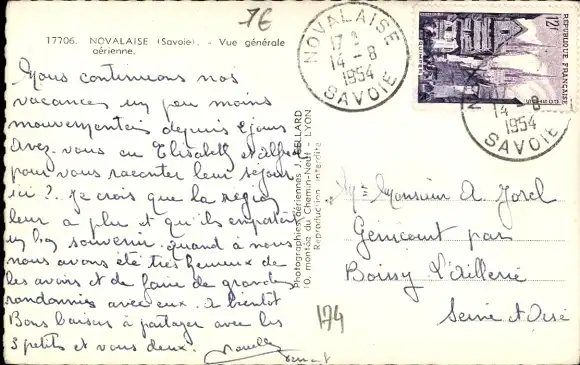 7E
17706. NOVALAISE (Savoie). - Vue générale
aérienne.
Nous continuons nos
vacances un peu moins
mouvementées depuis 2 jours
Avez-vous eu Elisabeth et Alfred
pour vous raconter leur séjour
ici ? Je crois que la région
leur a plu et qu'ils emportent
un bon souvenir. quand à nous
nous avons été très heureux de
les avoir et de faire de grandes
randonnées avec eux. à bientôt
Bons baisers à partager avec les
3 petits et vous deux.
Photographies aériennes J. CELLARD
10, montée du Chemin-Neuf - LYON
Reproduction interdite
NOVALAISE
17 H
14 - 8
1954
SAVOIE
12F
REPUBLIQUE FRANÇAISE
POSTES
QUIMPER
14 - 8
1954
SAVOIE
Monsieur A. Jorel
Génicourt par
Boissy L'Aillerie
Seine et Oise
174